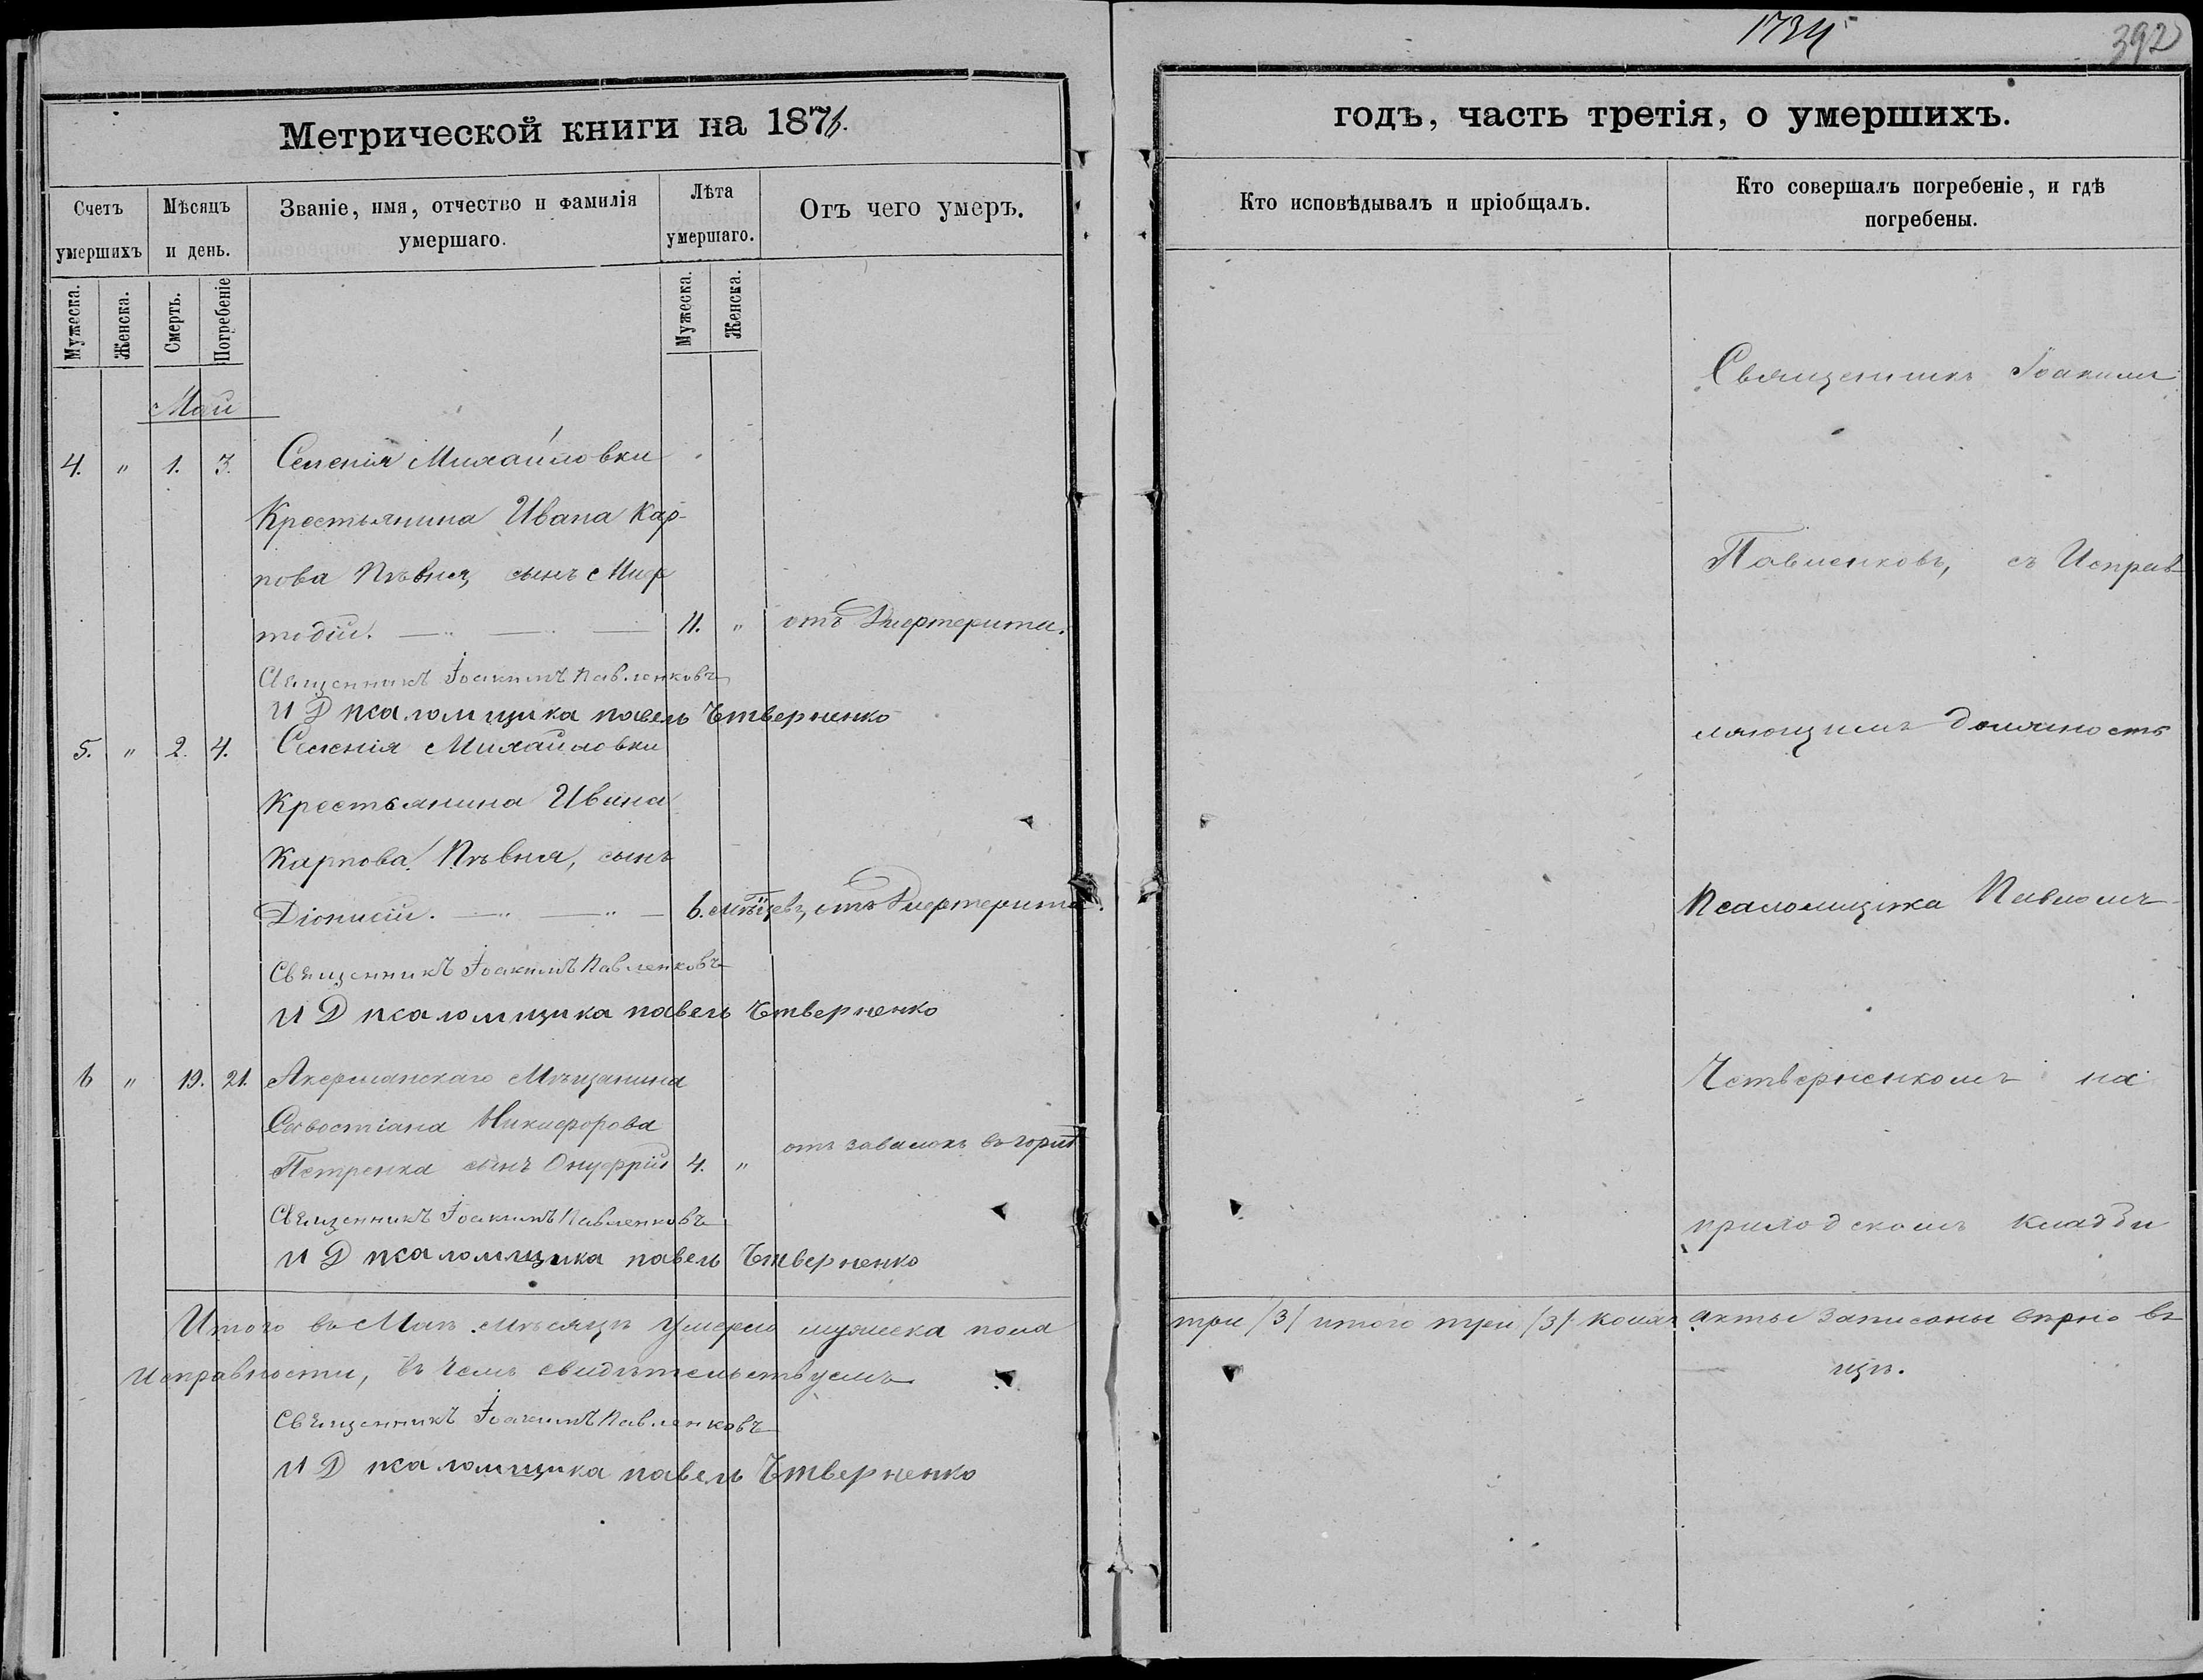 1734
392
Метрической книги на 1876.
годъ, часть третія, о умершихъ.
Счетъ умершихъ
Мѣсяцъ и день.
Званіе, имя, отчество и фамилія умершаго.
Лѣта умершаго.
Отъ чего умеръ.
Кто исповѣдывалъ и пріобщалъ.
Кто совершалъ погребеніе, и гдѣ погребены.
Мужеска.
Женска.
Смерть.
Погребеніе
Мужеска.
Женска.
Май
4. " 1. 3. Селенія Михайловки
Крестьянина Ивана Кар-
пова Пѣвня, сынъ
тодій. 11. " отъ Дифтерита.
Священникъ Іоакимъ Павленковъ
И Д псаломщика павелъ Четверненко
5. " 2. 4. Селенія Михайловки
Крестьянина Ивана
Карпова Пѣвня, сынъ
Діонисій. 6. мѣсяцевъ, отъ Дифтерита.
Священникъ Іоакимъ Павленковъ
И Д псаломщика павелъ Четверненко
6 " 19. 21. Акерманскаго Мѣщанина
Севостіана Никифорова
Петренка сынъ Онуфрій 4. " отъ завалокъ въ горлѣ
Священникъ Іоакимъ Павленковъ
И Д псаломщика павелъ Четверненко
Священникъ Іоакимъ
Павленковъ, съ Исправ
ляющимъ должность
Псаломщика Павломъ
Четверненкомъ на
приходскомъ кладби
щѣ.
Итого въ Маѣ мѣсяцѣ умерло мужеска пола три /3/ итого три /3/ коихъ акты записаны вѣрно въ
исправности, въ чемъ свидѣтельствуемъ
Священникъ Іоакимъ Павленковъ
И Д псаломщика павелъ Четверненко